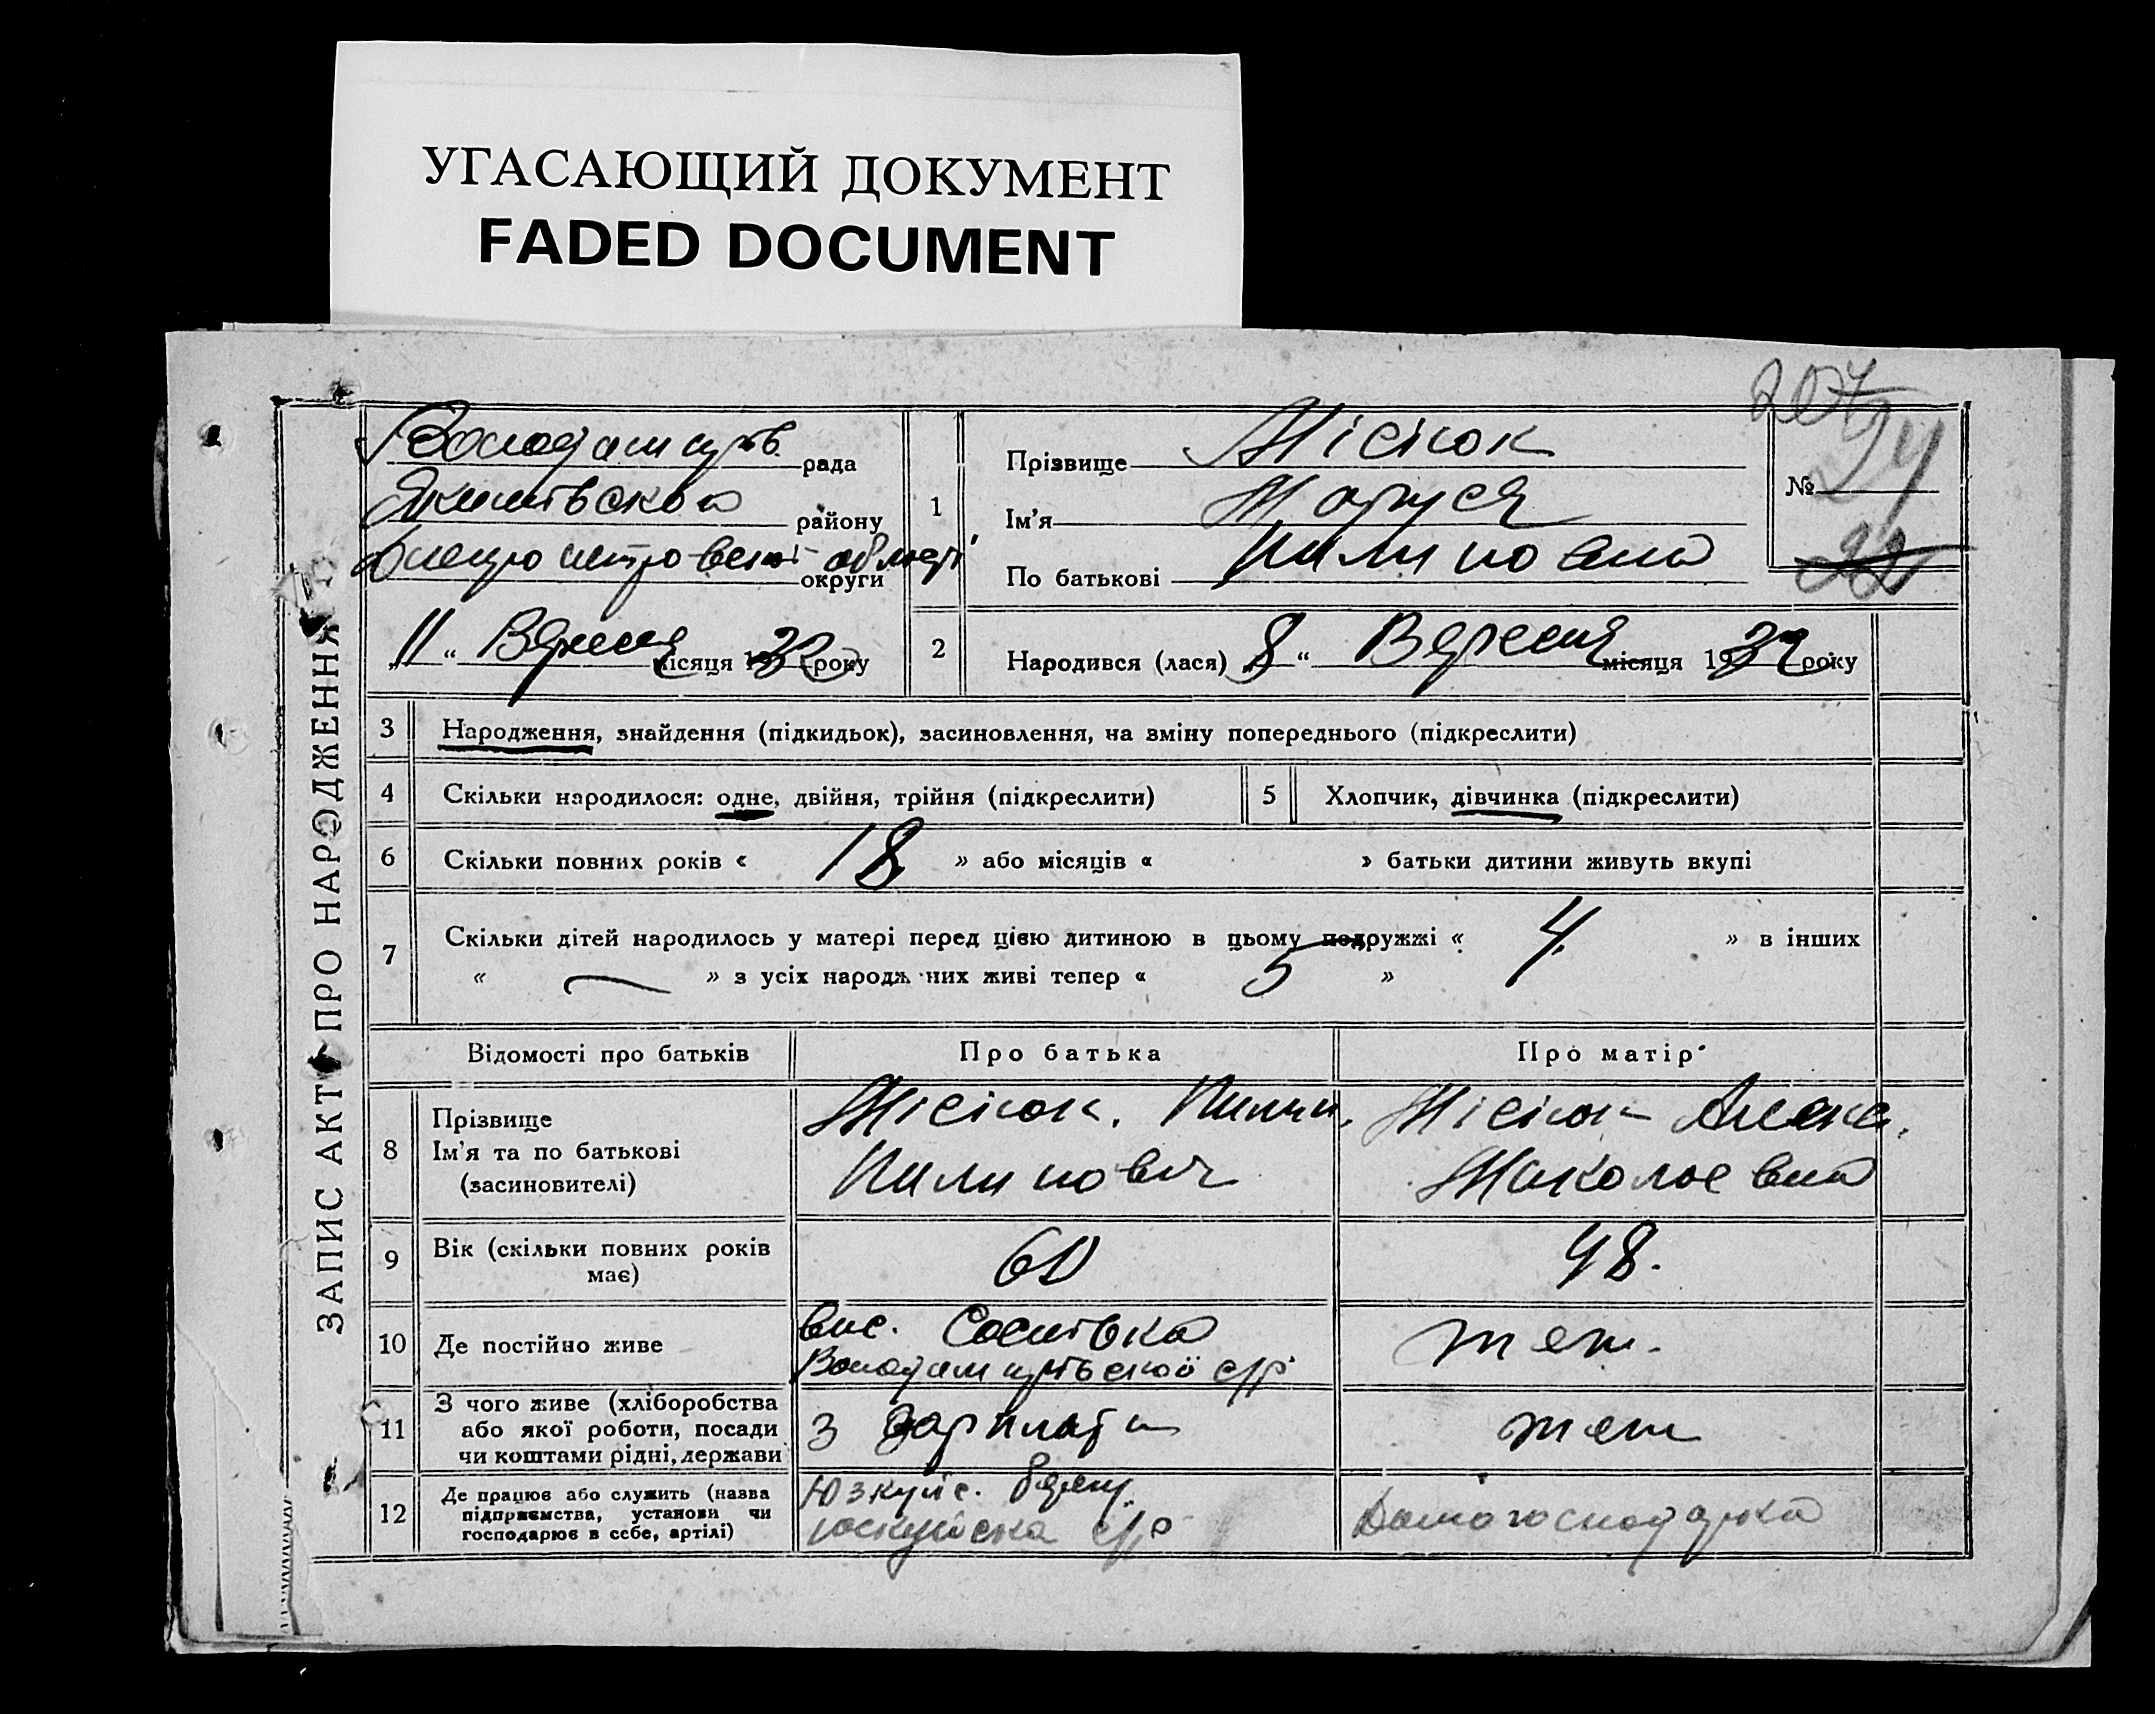 УГАСАЮЩИЙ ДОКУМЕНТ
FADED DOCUMENT
207
ЗАПИС АКТ ПРО НАРОДЖЕННЯ
рада
району
Днепропетровської області округи
„11“ Вересня місяця 1932 року
1
Прізвище Місіюк
Ім’я Маруся
По батькові Пилиповна
№ 24
22
2
Народився (лася) 8 “ Вересня місяця 1932 року
3 Народження, знайдення (підкидьок), засиновлення, на вміну попереднього (підкреслити)
4 Скільки народилося: одне, двійня, трійня (підкреслити)
5 Хлопчик, дівчинка (підкреслити)
6 Скільки повних років « 18 » або місяців « » батьки дитини живуть вкупі
7 Скільки дітей народилось у матері перед цією дитиною в цьому подружжі « 4 » в інших
« — » з усіх народж них живі тепер « 5 »
Відомості про батьків
Про батька
Про матір
8 Прізвище
Ім’я та по батькові
(засиновителі)
Місіюк. Пилип.
Пилипович
Місіюк Алекс.
Миколаевна
9 Вік (скільки повних років
має)
60
48.
10 Де постійно живе
вис. Соснівка
с/р
теж.
11 З чого живе (хліборобства
або якої роботи, посади
чи коштами рідні, держави
З зарплати
теж
12 Де працює або служить (назва
підприємства, установи чи
господарює в себе, артілі)
с/р
Домогосподарка